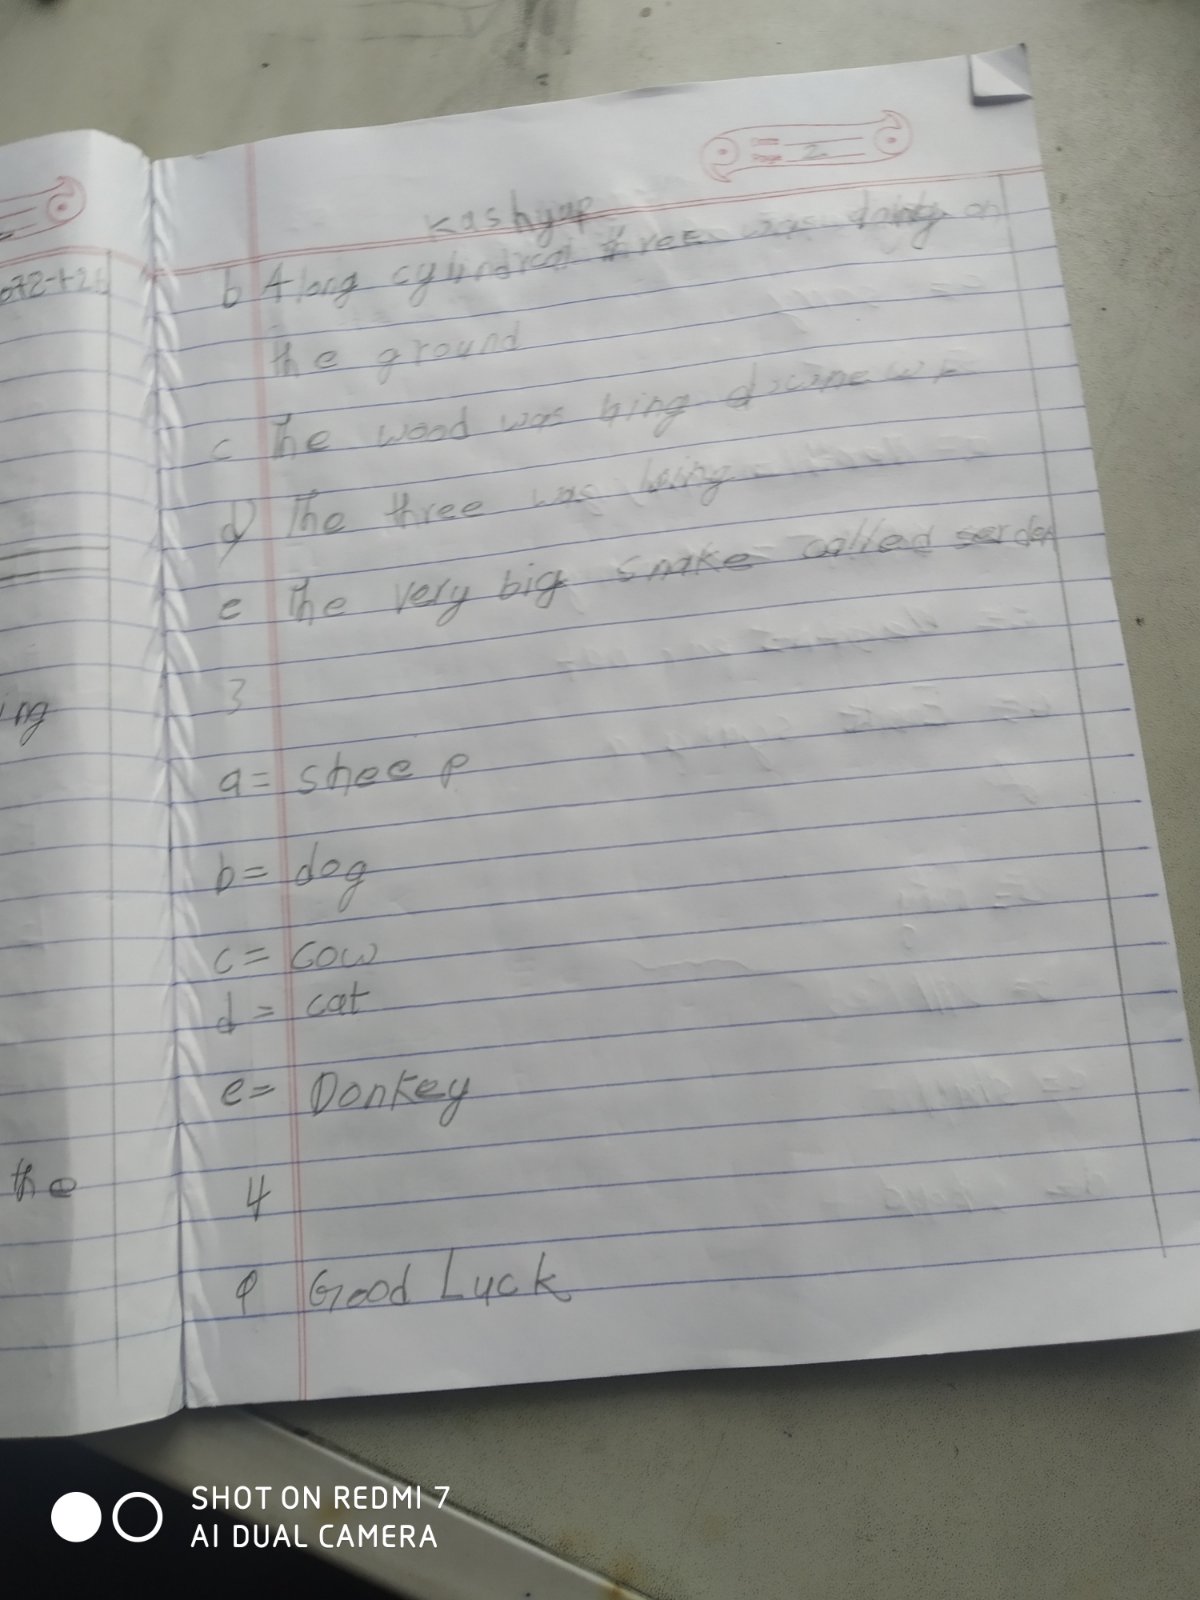 Date
Page 2
Kashyap
b A long cylindrical three was on
the ground
c The wood was bing
d) The three was being
e The very big snake called
3
a = sheep
b = dog
c = cow
d = cat
e = Donkey
4
Good Luck
ing
the
SHOT ON REDMI 7
AI DUAL CAMERA